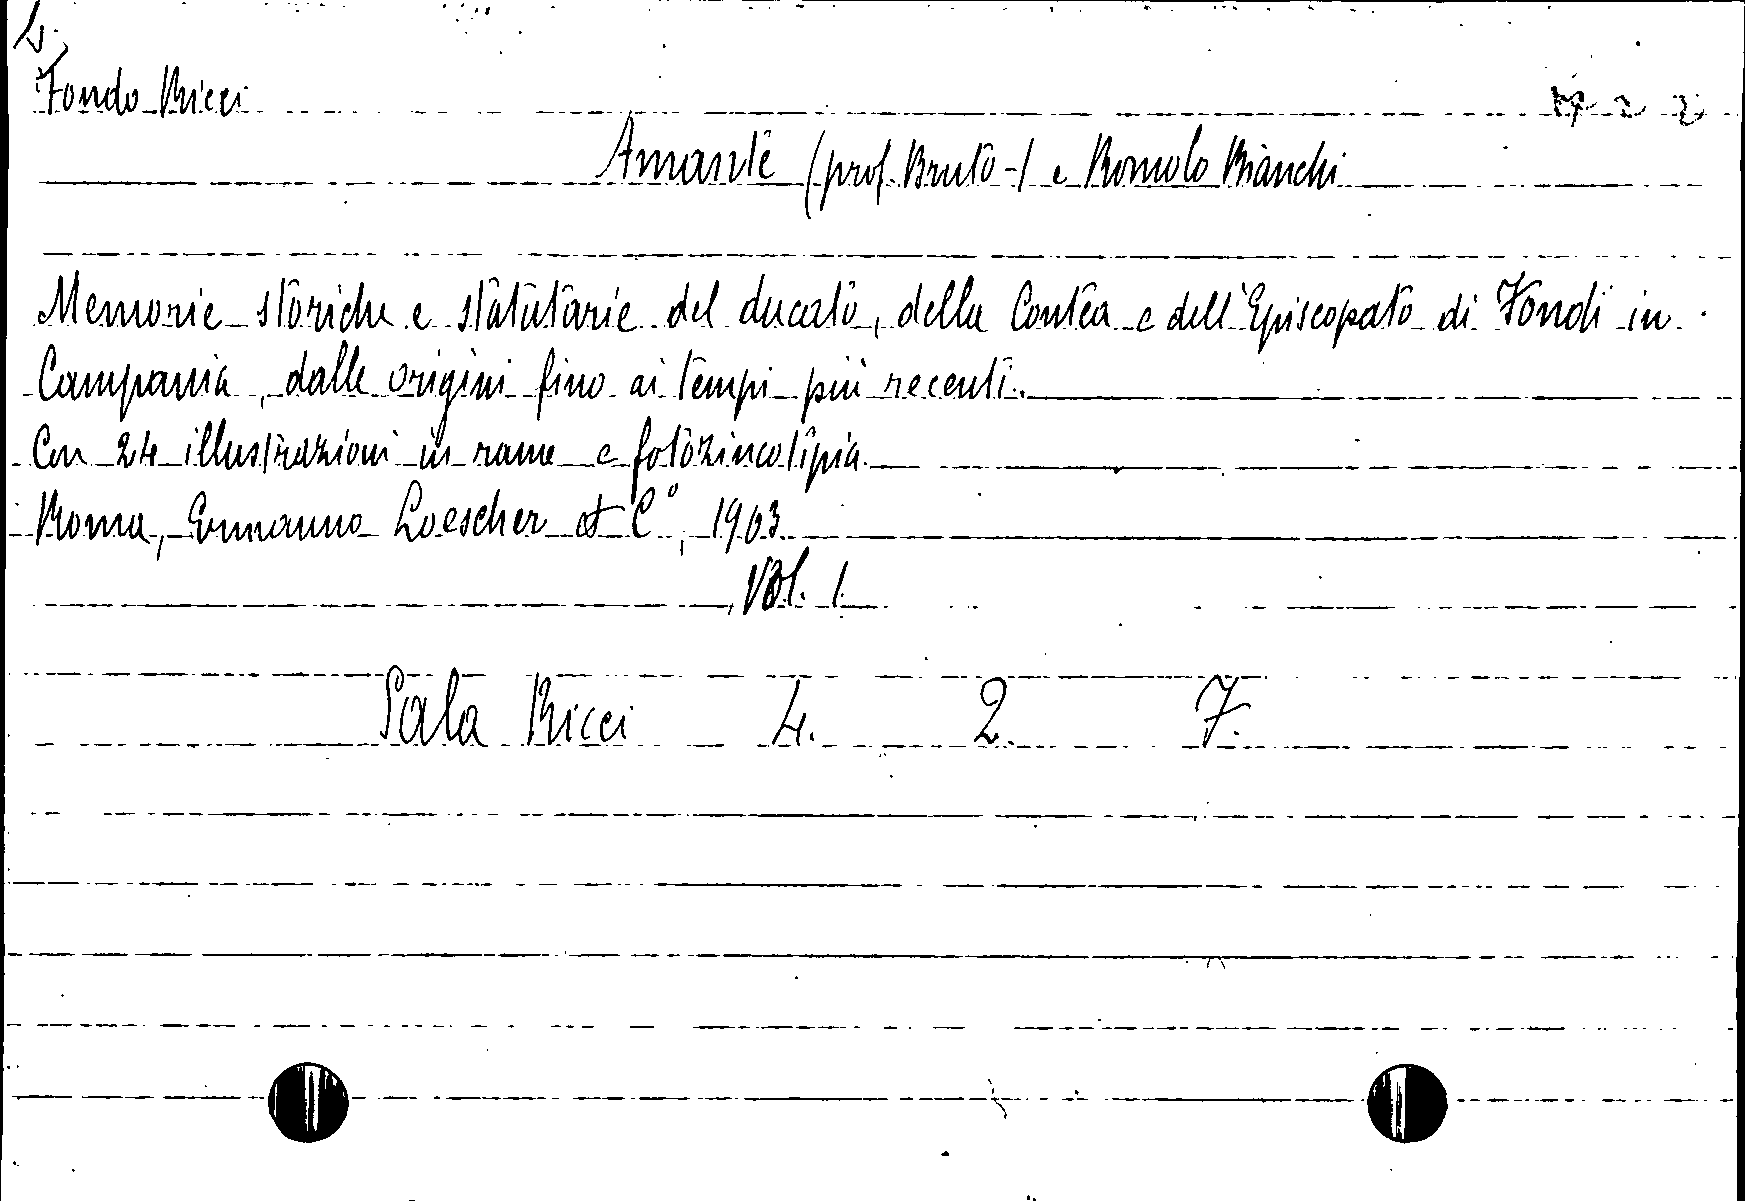 Fondo Ricci
Amante (prof. Bruto -) e Romolo Bianchi
Memorie storiche e statutarie del ducato, della Contea e dell'Episcopato di Fondi in
Campania, dalle origini fino ai tempi più recenti.
Con 24 illustrazioni in rame e fotozincotipia.
Roma, Ermanno Loescher et C°, 1903.
Vol. 1.
Sala Ricci 4. 2. 7.